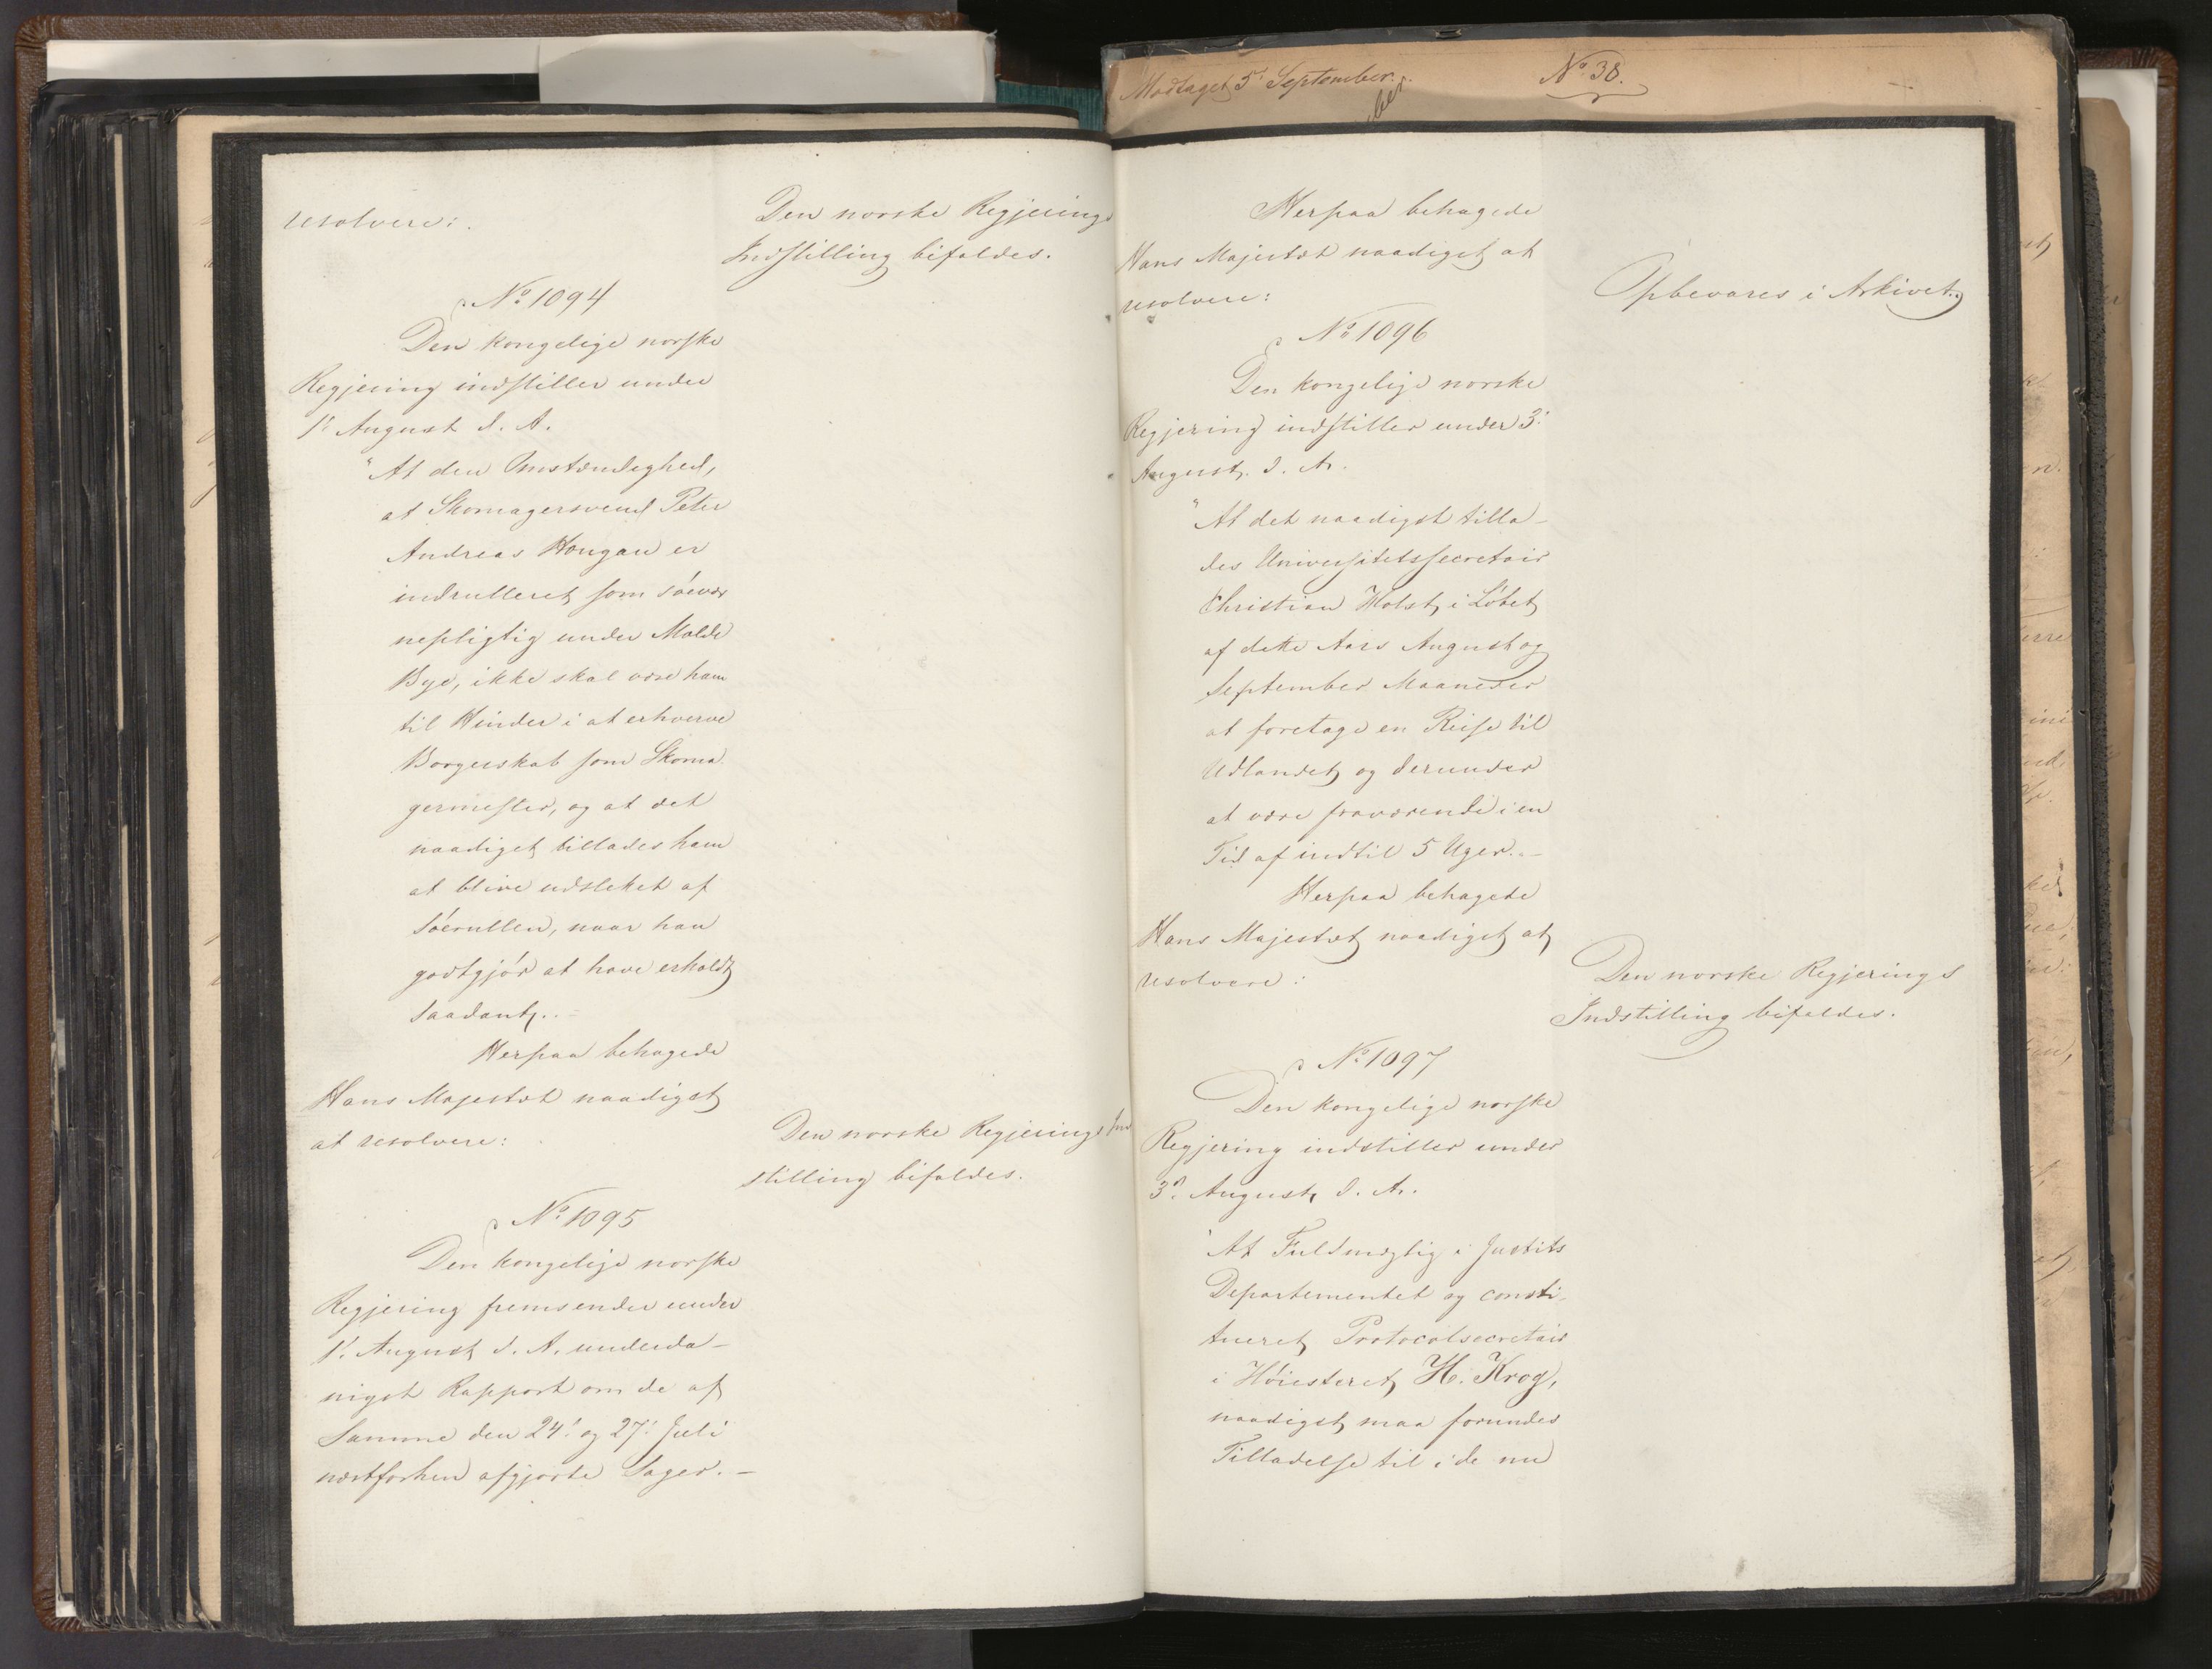 resolvere:
Den norske Regjerings
Indstilling bifaldes.
No 1094
Den kongelige norske
Regjering indstiller under
1. August d. A.
"At den Omstændighed,
at Skomagersvend Peter
Andreas Hougan er
indrulleret som søevær
nepligtig under Molde
Bye, ikke skal være ham
til Hinder i at erhverve
Borgerskab som Skoma
germester, og at det
naadigst tillades ham
at blive udslettet af
Søerullen, naar han
godtgjør at have erholdt
saadant.
Herpaa behagede
Hans Majestæt naadigst
at resolvere:
Den norske Regjerings Ind
stilling bifaldes.
No 1095
Den kongelige norske
Regjering fremsender under
1. August d. A. underda-
nigst Rapport om de af
Samme den 24. og 27. Juli
næstforhen afgjorte Sager. -
Modtaget 5. September.
No 38.
ber
Herpaa behagede
Hans Majestæt naadigst at
resolvere:
Opbevares i Arkivet.
No 1096
Den kongelige norske
Regjering indstiller under 3.
August d. A.
"At det naadigst tilla-
des Universitetssecretair
Christian Holst, i Løbet
af dette Aars August og
September Maaneder
at foretage en Reise til
Udlandet og derunder
at være fraværende i en
Tid af indtil 5 Uger. -
Herpaa behagede
Hans Majestæt naadigst at
resolvere:
Den norske Regjerings
Indstilling bifaldes.
No 1097
Den kongelige norske
Regjering indstiller under
3. August d. A.
"At Fuldmægtig i Justits
Departementet og consti-
tueret Protocolsecretair
i Høiesteret, H. Krog,
naadigst maa forundes
Tilladelse til i de nu